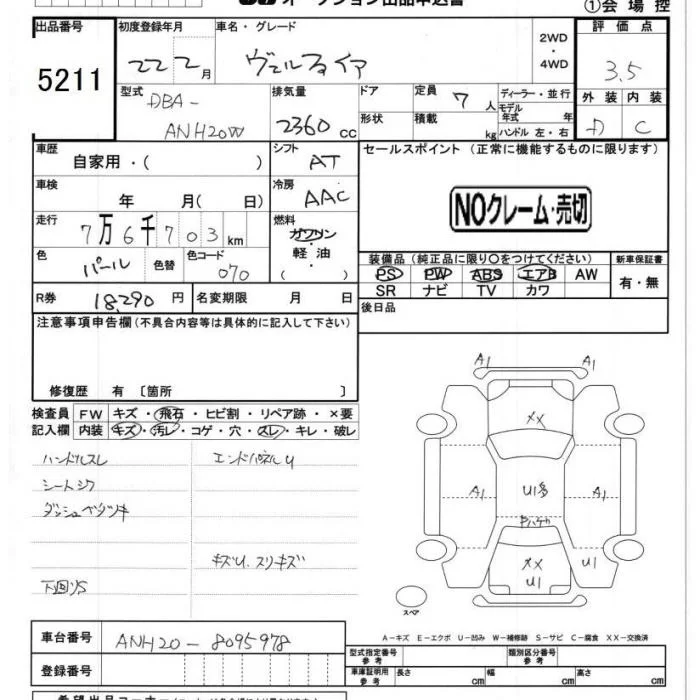 オークション出品申込書
①会場控
出品番号 初度登録年月 車名・グレード 評価点
5211 22 2月 ヴェルファイア 2WD・4WD 3.5
型式 排気量 ドア 定員 7人 ディーラー・並行 外装 内装
DBA-ANH20W 2360cc 形状 積載 kg モデル年式 年 ハンドル 左・右 D C
車歴 自家用・( ) シフト AT セールスポイント(正常に機能するものに限ります)
車検 年 月( 日) 冷房 AAC
NOクレーム・売切
走行 7万6千703km 燃料 ガソリン・軽油・( )
色 パール 色替 色コード 070
装備品(純正品に限り○をつけてください) 新車保証書
PS PW ABS エアB AW 有・無
SR ナビ TV カワ
R券 18,290円 名変期限 月 日 後日品
注意事項申告欄(不具合内容等は具体的に記入して下さい)
修復歴 有〔箇所 〕
検査員記入欄 FW キズ・飛石・ヒビ割・リペア跡・×要
内装 キズ・汚レ・コゲ・穴・スレ・キレ・破レ
ハンドルスレ エンドパネルU
シートシワ
ダッシュベタツキ
キズU、スリキズ
下回りS
A1 A1
XX
A1 U1多 A1
XX U1
U1
スペア
A-キズ E-エクボ U-凹み W-補修跡 S-サビ C-腐食 XX-交換済
車台番号 ANH20-8095978
型式指定番号 参考 類別区分番号 参考
登録番号 車庫証明用 参考 長さ cm 幅 cm 高さ cm